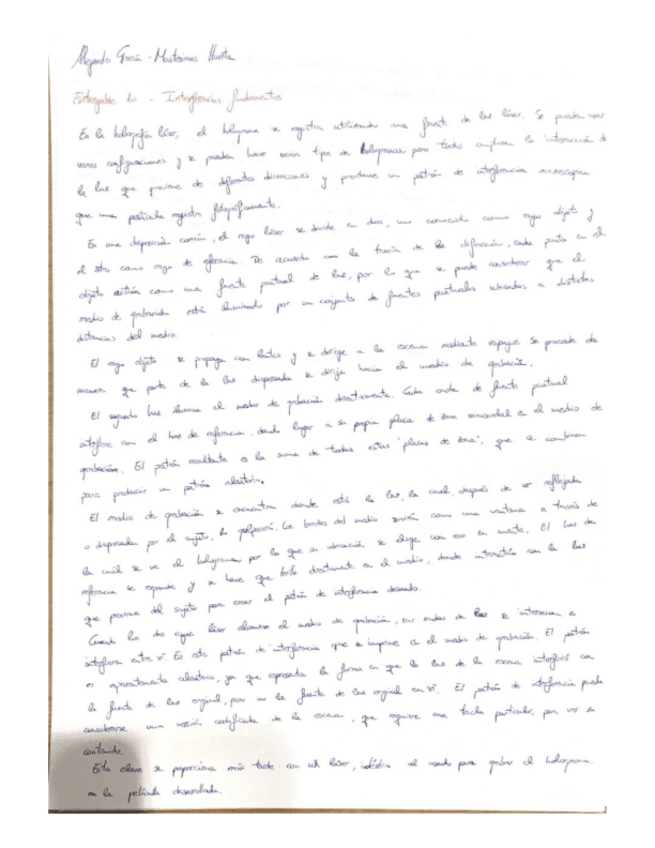 Alejandro García - Mastesinos Huerta
Entregable 10 - Interferencias fundamentos
En la holografía láser, el holograma se registra utilizando una fuente de luz láser. Se pueden usar
varias configuraciones y se pueden hacer varios tipos de hologramas, pero todos implican la interacción de
la luz que proviene de diferentes direcciones y produce un patrón de interferencia microscópica
que una película registra fotográficamente.
En una disposición común, el rayo láser se divide en dos, uno conocido como rayo objeto y
el otro como rayo de referencia. De acuerdo con la teoría de la difracción, cada punto en el
objeto actúa como una fuente puntual de luz, por lo que se puede considerar que el
medio de grabación está iluminado por un conjunto de fuentes puntuales ubicadas a distintas
distancias del medio.
El rayo objeto se propaga con lentes y se dirige a la escena mediante espejos. Se procede de
manera que parte de la luz dispersada se dirija hacia el medio de grabación.
El segundo haz ilumina el medio de grabación directamente. Cada onda de fuente puntual
interfiere con el haz de referencia, dando lugar a su propia placa de zona sinusoidal en el medio de
grabación. El patrón resultante es la suma de todas estas "placas de zona", que se combinan
para producir un patrón aleatorio.
El medio de grabación se encuentra donde está la luz, la cual, después de ser reflejada
o dispersada por el sujeto, la golpeará. Los bordes del medio servirán como una ventana a través de
la cuál se ve el holograma, por lo que su ubicación se elige con eso en mente. El haz de
referencia se expande y se hace que brille directamente en el medio, donde interactúa con la luz
que proviene del sujeto para crear el patrón de interferencia deseado.
Cuando los dos rayos láser alcanzan el medio de grabación, sus ondas de luz se intersecan e
interfieren entre sí. Es este patrón de interferencia que se imprime en el medio de grabación. El patrón
es aparentemente aleatorio, ya que representa la forma en que la luz de la escena interfirió con
la fuente de luz original, pero no la fuente de luz original en sí. El patrón de interferencia puede
considerarse una versión codificada de la escena, que requiere una tecla particular, para ver su
contenido.
Esta clave se proporciona más tarde con un láser, idéntico al usado para grabar el holograma,
en la película desarrollada.